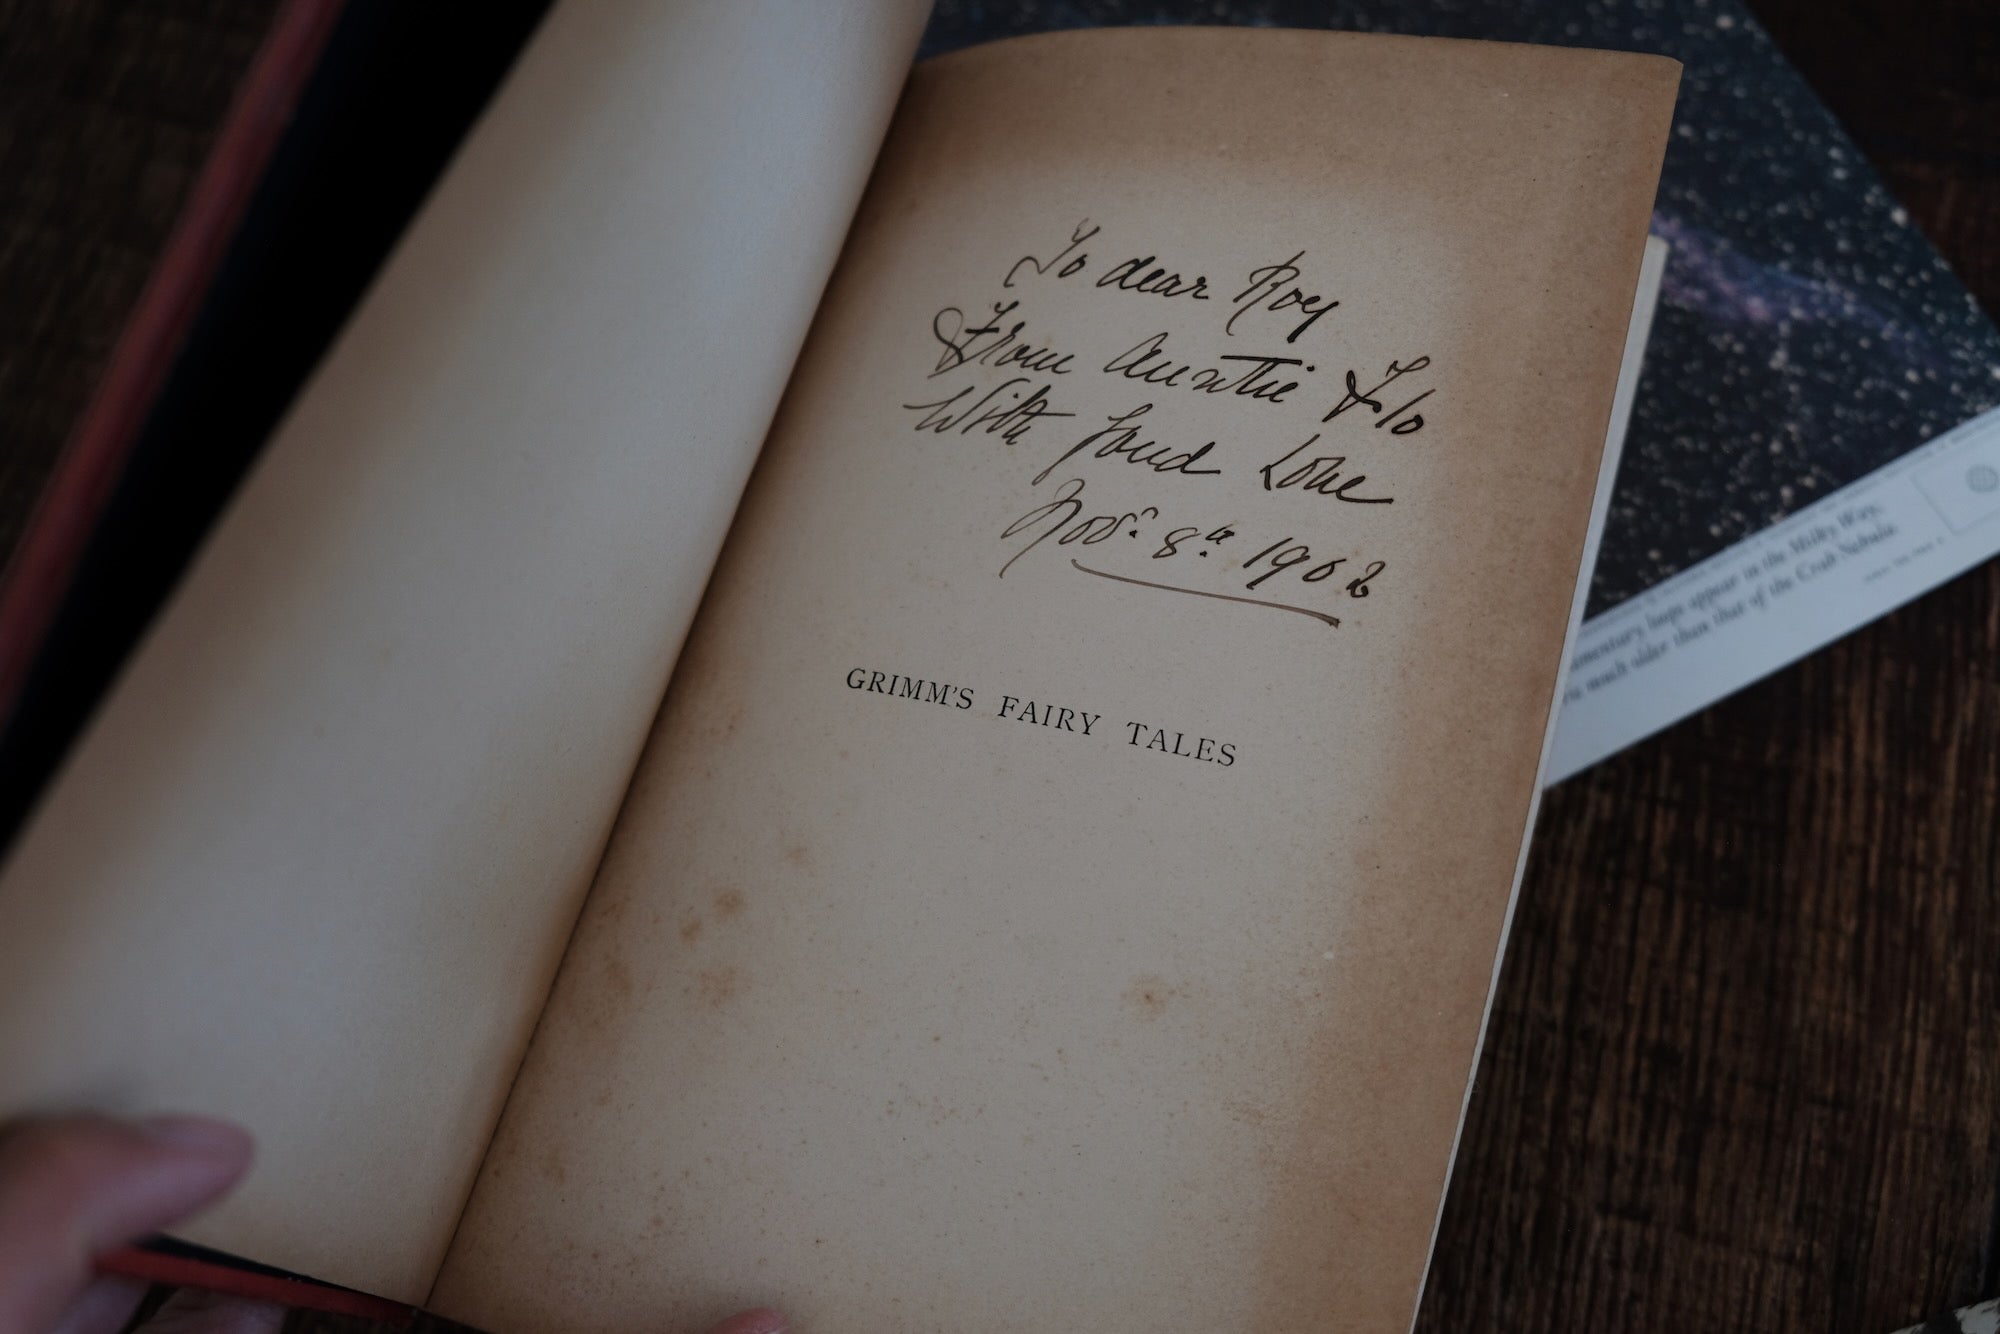 To dear Roy
From Auntie Flo
With fond Love
Novr. 8th 1902
GRIMM'S FAIRY TALES
loops appear in the Milky Way,
much older than that of the Crab Nebula